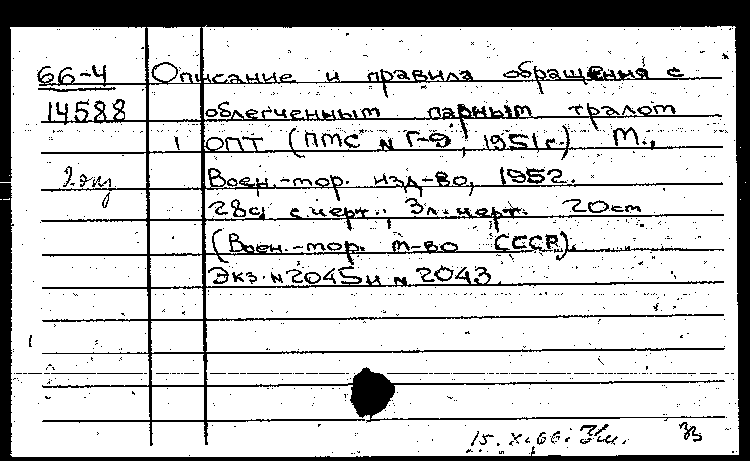 66-4 Описание и правила обращения с
14588 облегченным парным тралом
1 ОПТ (ПМС № Г-9, 1951г.) М.,
2 экз Воен.-мор. изд-во, 1952.
28с, с черт.; 3л. черт. 20см
(Воен.-мор. м-во СССР).
Экз. №2045 и №2043.
15.X.66.